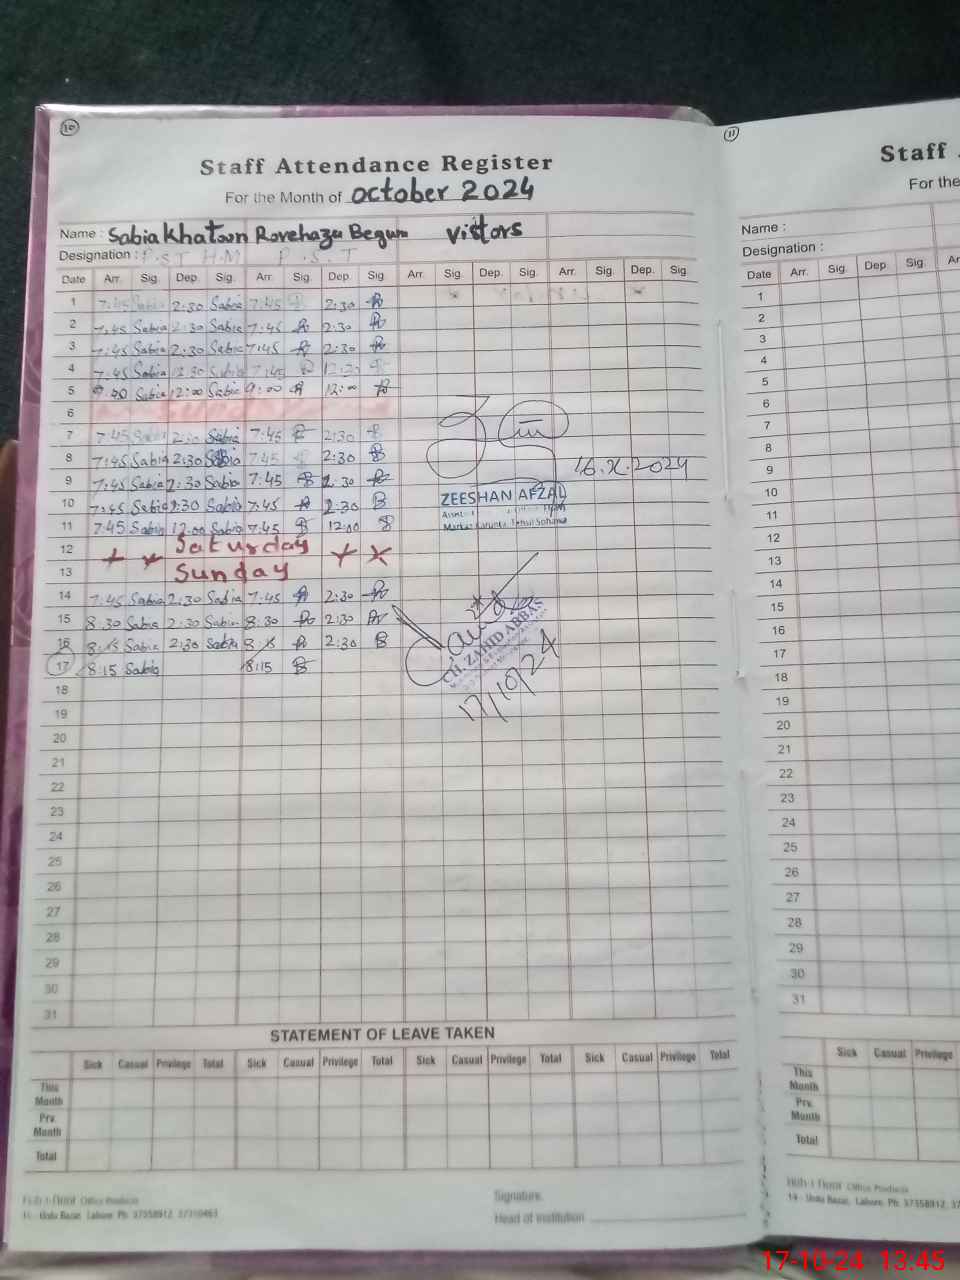 10
Staff Attendance Register
For the Month of October 2024
Name : Sabia Khatoon Begum Vistors
Designation : P.S.T H.M P.S.T
Date Arr. Sig. Dep. Sig. Arr. Sig. Dep. Sig. Arr. Sig. Dep. Sig. Arr. Sig. Dep. Sig.
1 7:45 Sabia 2:30 Sabia 7:45 2:30
2 7:45 Sabia 2:30 Sabia 7:45 2:30
3 7:45 Sabia 2:30 Sabia 7:45 2:30
4 7:45 Sabia Sabia 7:45
5 Sabia 12:00 Sabia 9:00 12:00
6
7 7:45 Sabia 2:30 Sabia 7:45 2:30
8 7:45 Sabia 2:30 Sabia 7:45 2:30
9 7:45 Sabia 2:30 Sabia 7:45 2:30
16.X.2024
10 7:45 Sabia 2:30 Sabia 7:45 2:30
ZEESHAN AFZAL
11 7:45 Sabia 12:00 Sabia 7:45 12:00
12 Saturday
13 Sunday
14 7:45 Sabia 2:30 Sabia 7:45 2:30
15 8:30 Sabia 2:30 Sabia 8:30 2:30
16 8:15 Sabia 2:30 Sabia 8:15 2:30
CH. ZAHID ABBAS
17/10/24
17 8:15 Sabia 8:15
18
19
20
21
22
23
24
25
26
27
28
29
30
31
STATEMENT OF LEAVE TAKEN
Sick Casual Privilege Total Sick Casual Privilege Total Sick Casual Privilege Total Sick Casual Privilege Total
This Month
Prv. Month
Total
Office Products
Urdu Bazar, Lahore. Ph: 37358912,
Signature
Head of Institution
11
Staff
For the
Name :
Designation :
Date Arr. Sig. Dep. Sig.
1
2
3
4
5
6
7
8
9
10
11
12
13
14
15
16
17
18
19
20
21
22
23
24
25
26
27
28
29
30
31
Sick Casual Privilege
This Month
Prv. Month
Total
Office Products
Urdu Bazar, Lahore. Ph: 37358912,
17-10-24 13:45